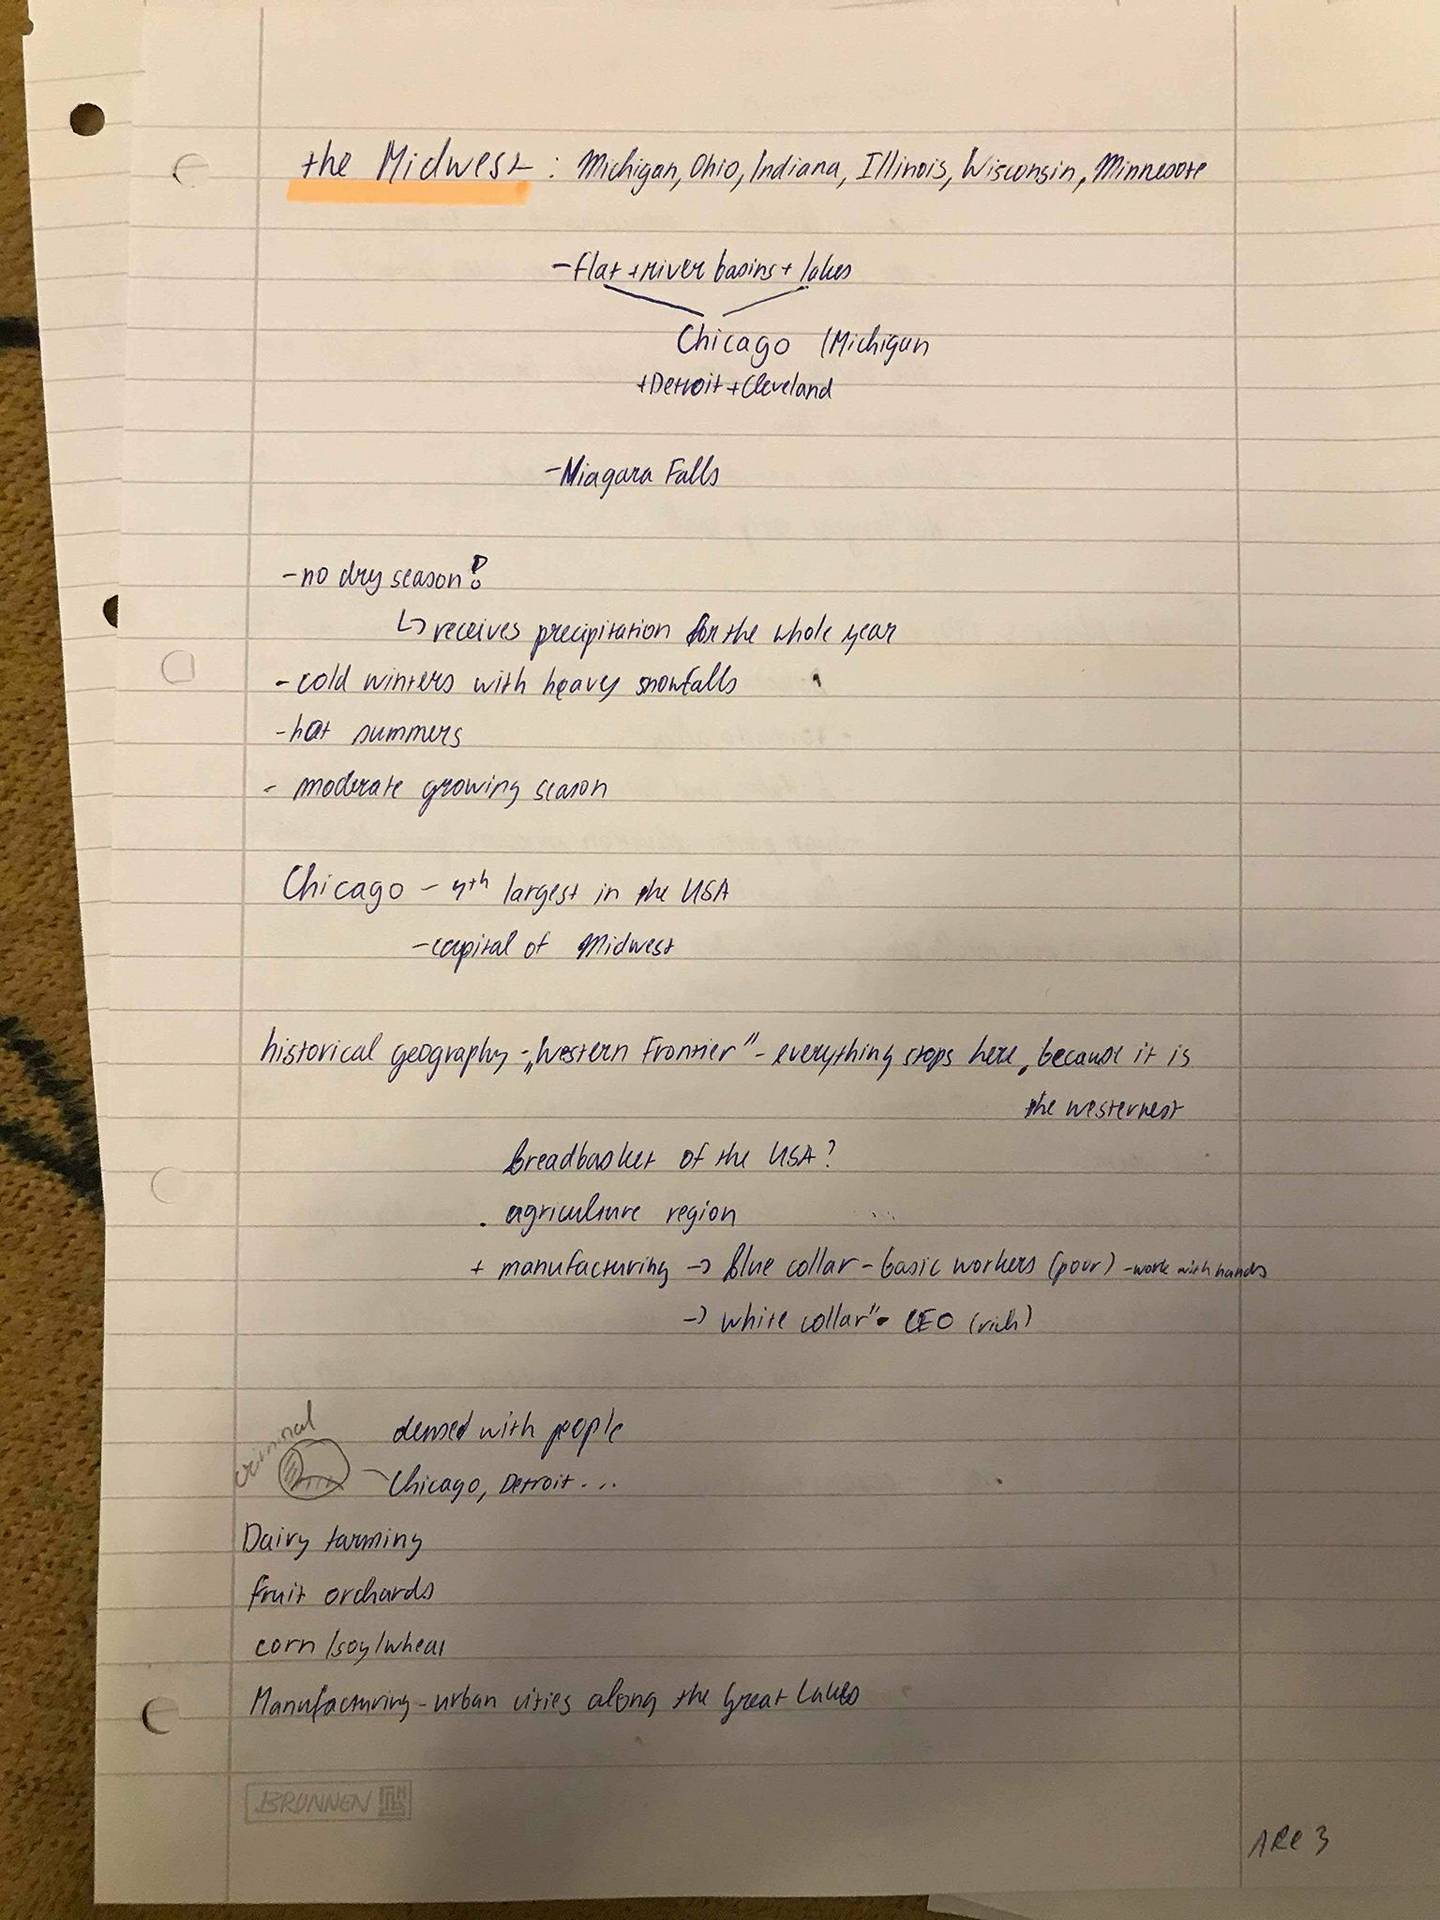 the Midwest : Michigan, Ohio, Indiana, Illinois, Wisconsin, Minnesote
- flat + river basins + lakes
Chicago /Michigan
+ Detroit + Cleveland
- Niagara Falls
- no dry season!
↳ receives precipitation for the whole year
- cold winters with heavy snowfalls
- hot summers
- moderate growing season
Chicago - 4th largest in the USA
- capital of Midwest
historical geography - „Western Frontier" - everything stops here, because it is
the westernest
breadbasket of the USA?
. agriculture region
+ manufacturing → blue collar - basic workers (pour) - work with hands
→ white collar" - CEO (rich)
criminal
densed with people
- Chicago, Detroit ...
Dairy farming
fruit orchards
corn /soy/wheat
Manufacturing - urban cities along the Great Lakes
BRUNNEN
ARC 3